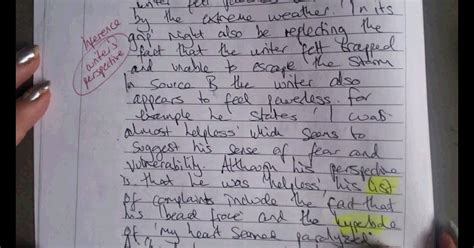 writer feel powerless and
by the extreme weather. 'In its
grip' might also be reflecting the
fact that the writer felt trapped
and unable to escape the storm
In Source B the writer also
appears to feel powerless. For
example he states 'I was
almost helpless' which seems to
suggest his sense of fear and
vulnerability. Although his perspective
is that he was 'helpless', his list
of complaints include the fact that
his 'head froze' and the hyperbole
of 'my heart seemed paralysed'
Inference
writer's
perspective